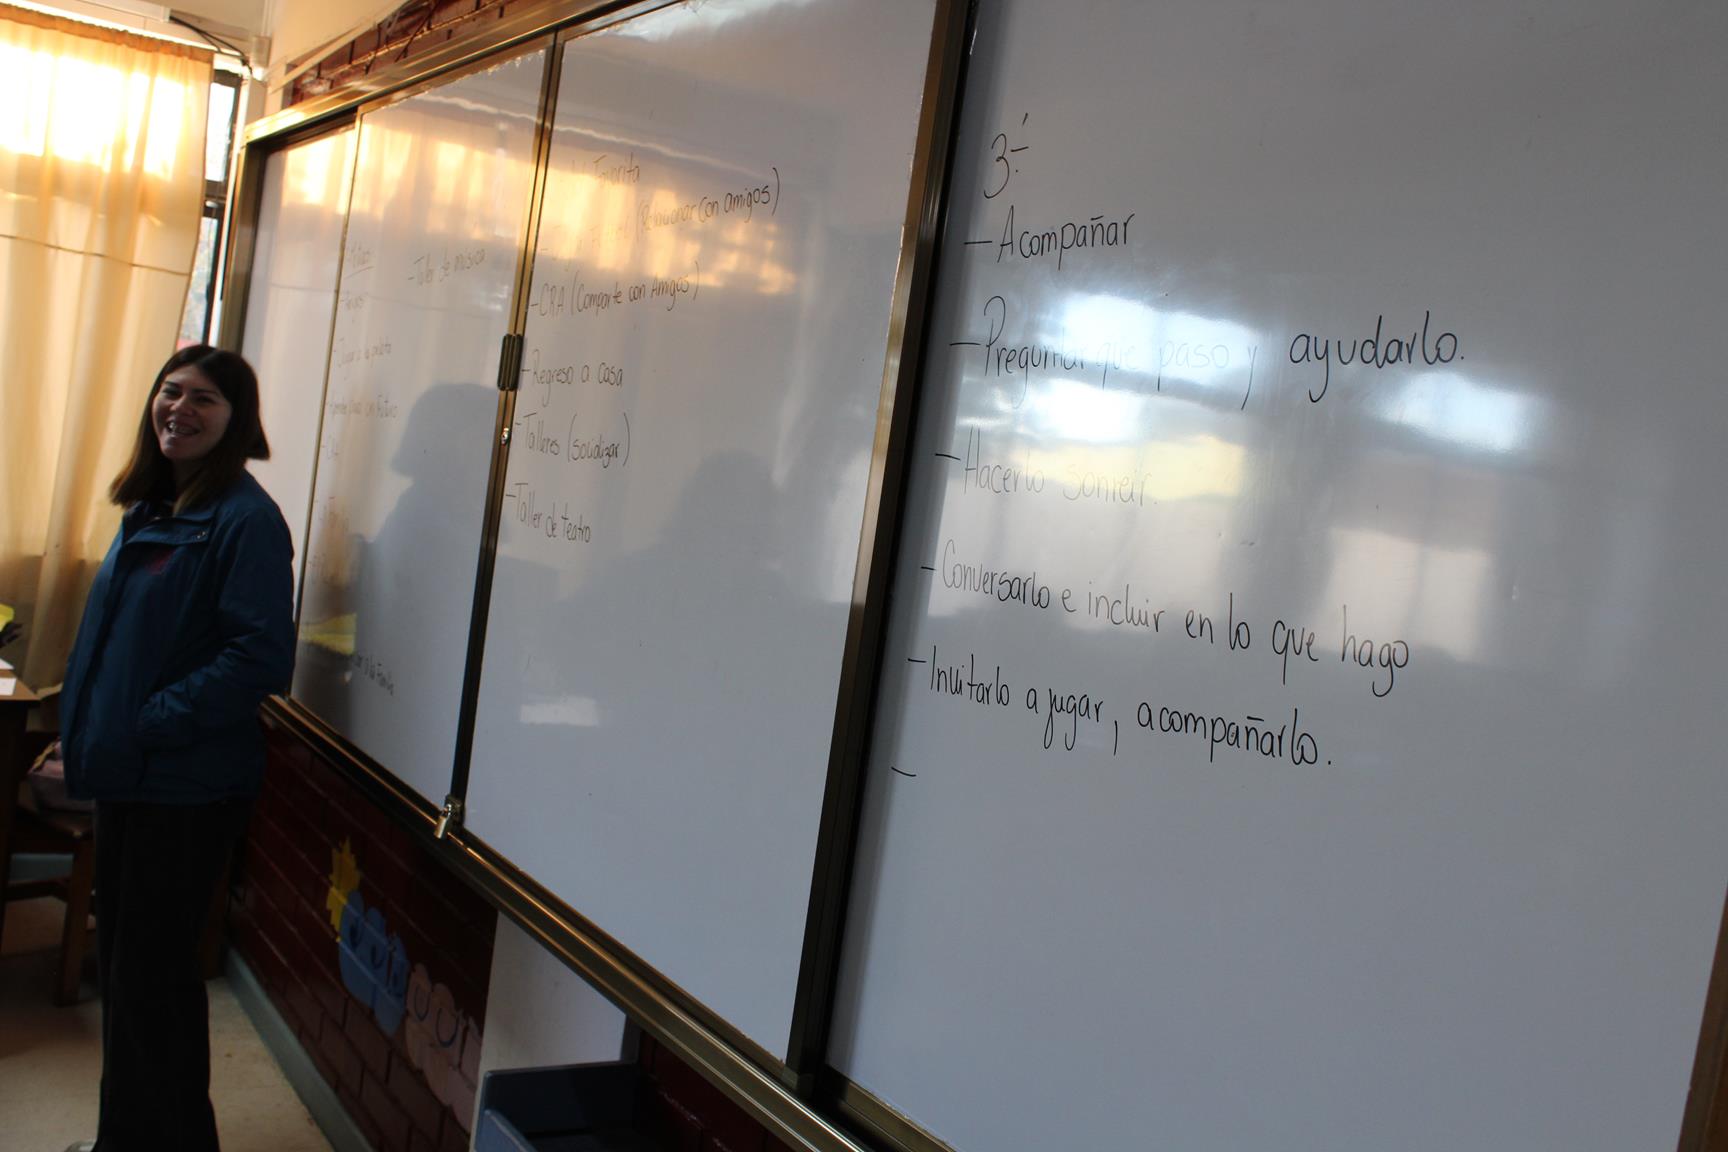 - Amigos
- Jugar a la pelota
- Aprender para un futuro
- CRA
a la familia
- Taller de música
Favorita
(Relacionar con amigos)
- CRA (Comparte con Amigos)
- Regreso a casa
- Talleres (socializar)
- Taller de teatro
3.-
- Acompañar
- Preguntar que paso y ayudarlo.
- Hacerlo sonreir.
- Conversarlo e incluir en lo que hago
- Invitarlo a jugar, acompañarlo.
-